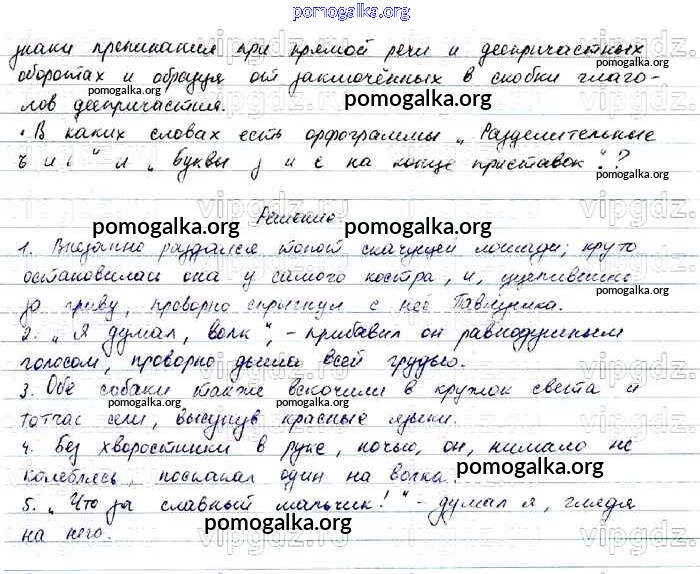 pomogalka.org
знаки препинания при прямой речи и деепричастных
оборотах и образуя от заключённых в скобки глаго-
лов деепричастия.
pomogalka.org
• В каких словах есть орфограммы „Разделительные
ъ и ь“ и „Буквы з и с на конце приставок“?
pomogalka.org
Решение
pomogalka.org
1. Внезапно раздался топот скачущей лошади; круто
остановилась она у самого костра, и, уцепившись
за гриву, проворно спрыгнул с неё Павлушка.
2. „Я думал, волк“, - прибавил он равнодушным
голосом, проворно дыша всей грудью.
3. Обе собаки также вскочили в кружок света и
тотчас сели, высунув красные языки.
4. Без хворостинки в руке, ночью, он, нимало не
колеблясь, поскакал один на волка.
5. „Что за славный мальчик!“ - думал я, глядя
на него.
pomogalka.org
vipgdz.ru